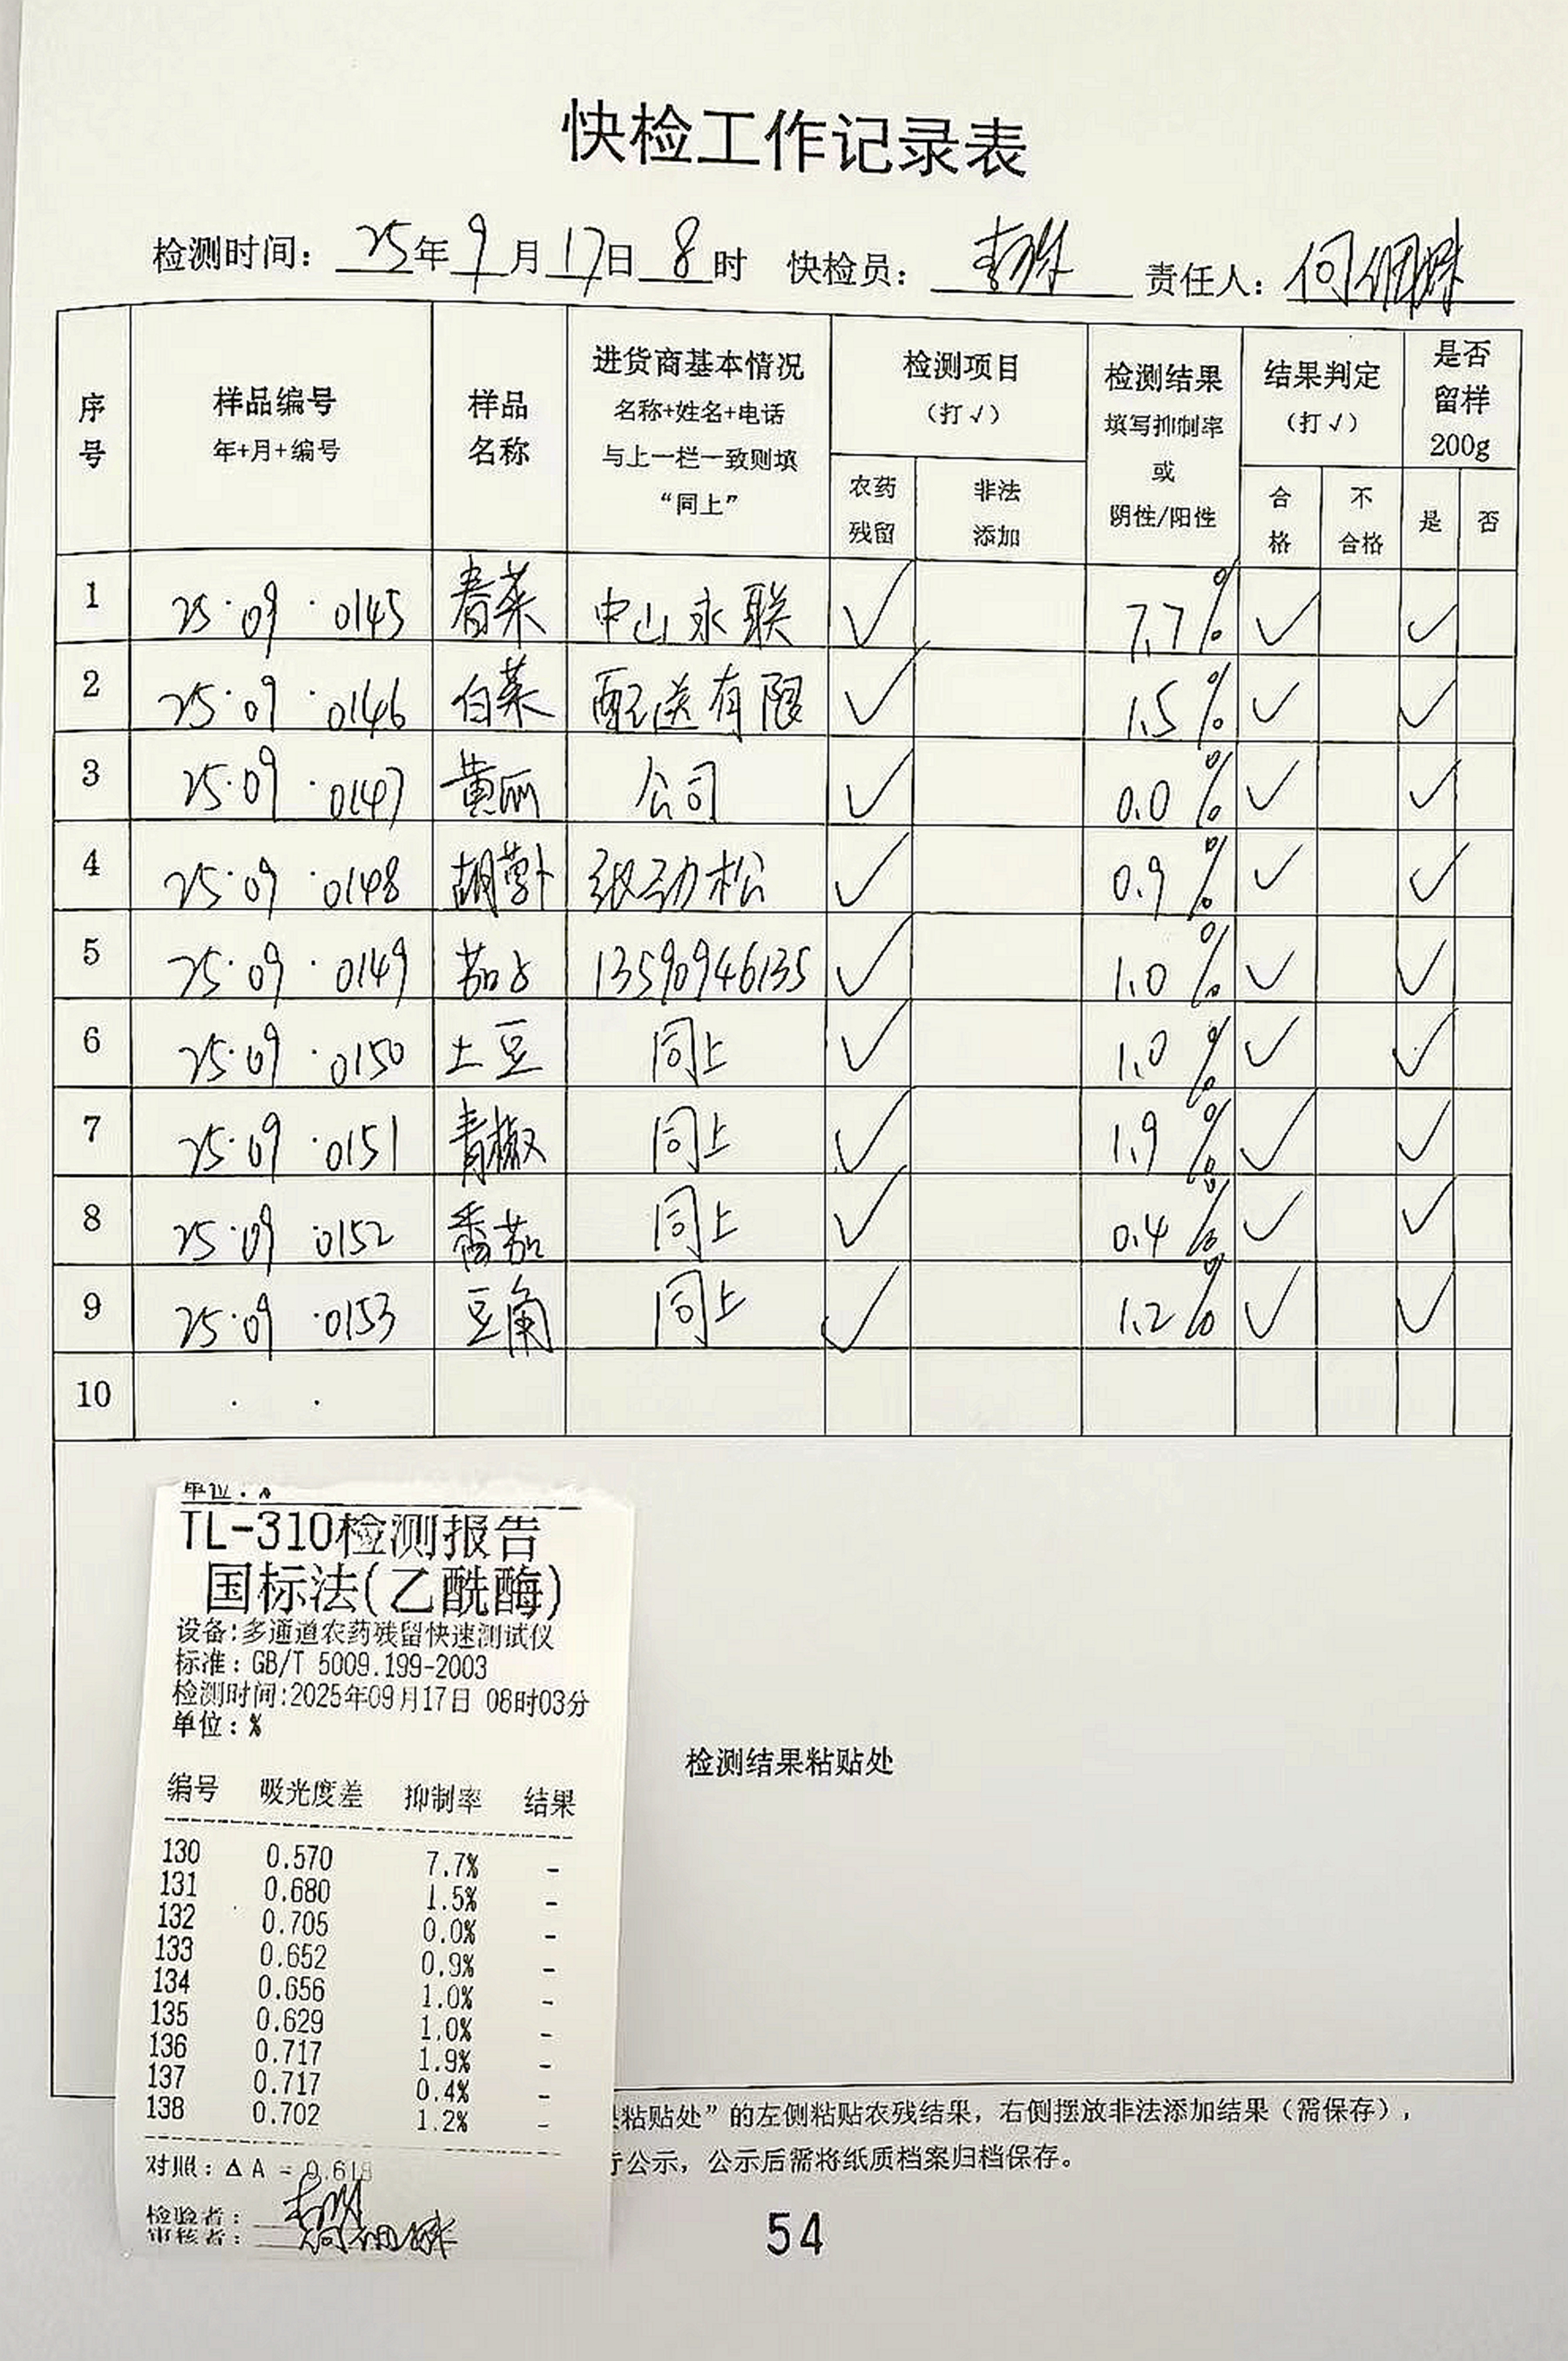 快检工作记录表
检测时间: 25年9月17日8时 快检员: 责任人: 何
序号 样品编号 年+月+编号 样品名称 进货商基本情况 名称+姓名+电话 与上一栏一致则填 “同上” 检测项目 (打√) 农药残留 非法添加 检测结果 填写抑制率 或 阴性/阳性 结果判定 (打√) 合格 不合格 是否留样 200g 是 否
1 25·09·0145 春菜 中山永联 √ 7.7% √ √
2 25·09·0146 白菜 配送有限 √ 1.5% √ √
3 25·09·0147 黄瓜 公司 √ 0.0% √ √
4 25·09·0148 胡萝卜 劲松 √ 0.9% √ √
5 25·09·0149 茄子 13590946135 √ 1.0% √ √
6 25·09·0150 土豆 同上 √ 1.0% √ √
7 25·09·0151 青椒 同上 √ 1.9% √ √
8 25·09·0152 番茄 同上 √ 0.4% √ √
9 25·09·0153 豆角 同上 √ 1.2% √ √
10 · ·
单位:%
TL-310检测报告
国标法(乙酰酶)
设备:多通道农药残留快速测试仪
标准: GB/T 5009.199-2003
检测时间:2025年09月17日 08时03分
单位:%
检测结果粘贴处
编号 吸光度差 抑制率 结果
130 0.570 7.7% -
131 0.680 1.5% -
132 0.705 0.0% -
133 0.652 0.9% -
134 0.656 1.0% -
135 0.629 1.0% -
136 0.717 1.9% -
137 0.717 0.4% -
138 0.702 1.2% -
粘贴处”的左侧粘贴农残结果,右侧摆放非法添加结果(需保存),
公示,公示后需将纸质档案归档保存。
对照: Δ A = 0.618
检验者:
审核者: 何
54